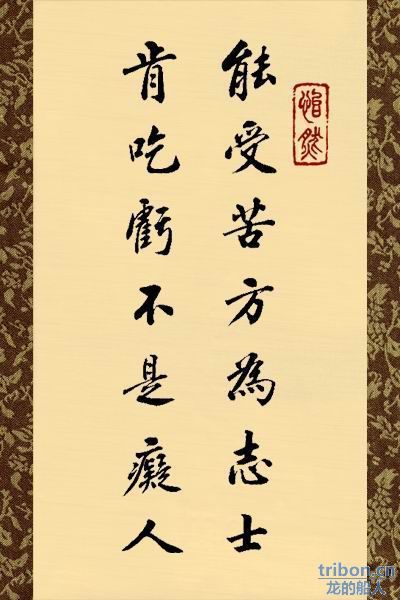 能受苦方為志士
肯吃虧不是癡人
tribon.cn
龙的船人